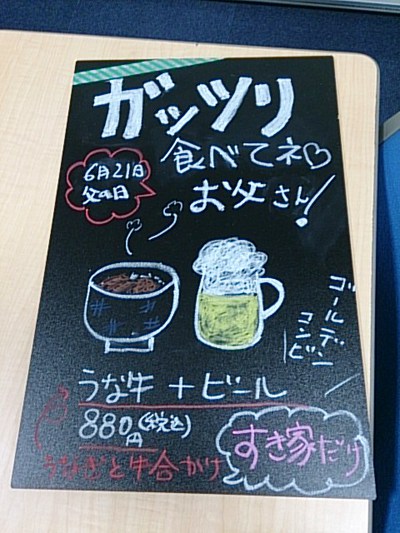 ガッツリ
食べてネ♡
お父さん!
6月21日
父の日
ゴールデン
コンビ
うな牛+ビール
880円(税込)
うなぎと牛合がけ
すき家だけ